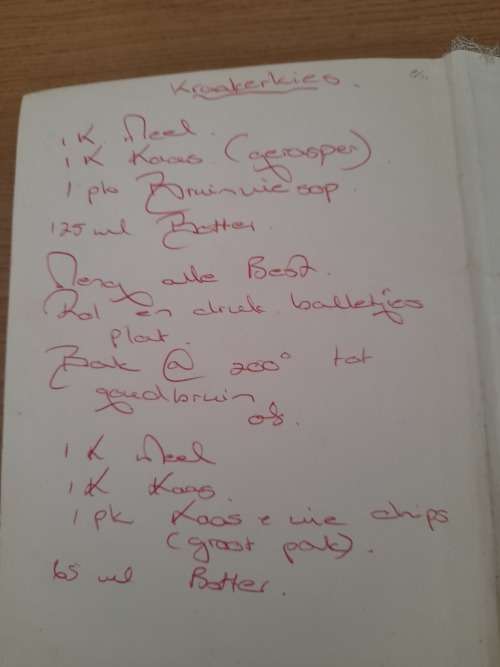 Kraakerkies.
1 K Meel.
1 K Kaas (gerasper).
1 pk Bruinuiesop.
125 ml Botter.
Meng alle Best.
Rol en druk balletjies
plat.
Bak @ 200° tot
goudbruin
of.
1 K Meel
1 K Kaas.
1 pk Kaas & uie chips
(groot pak).
65 ml Botter.